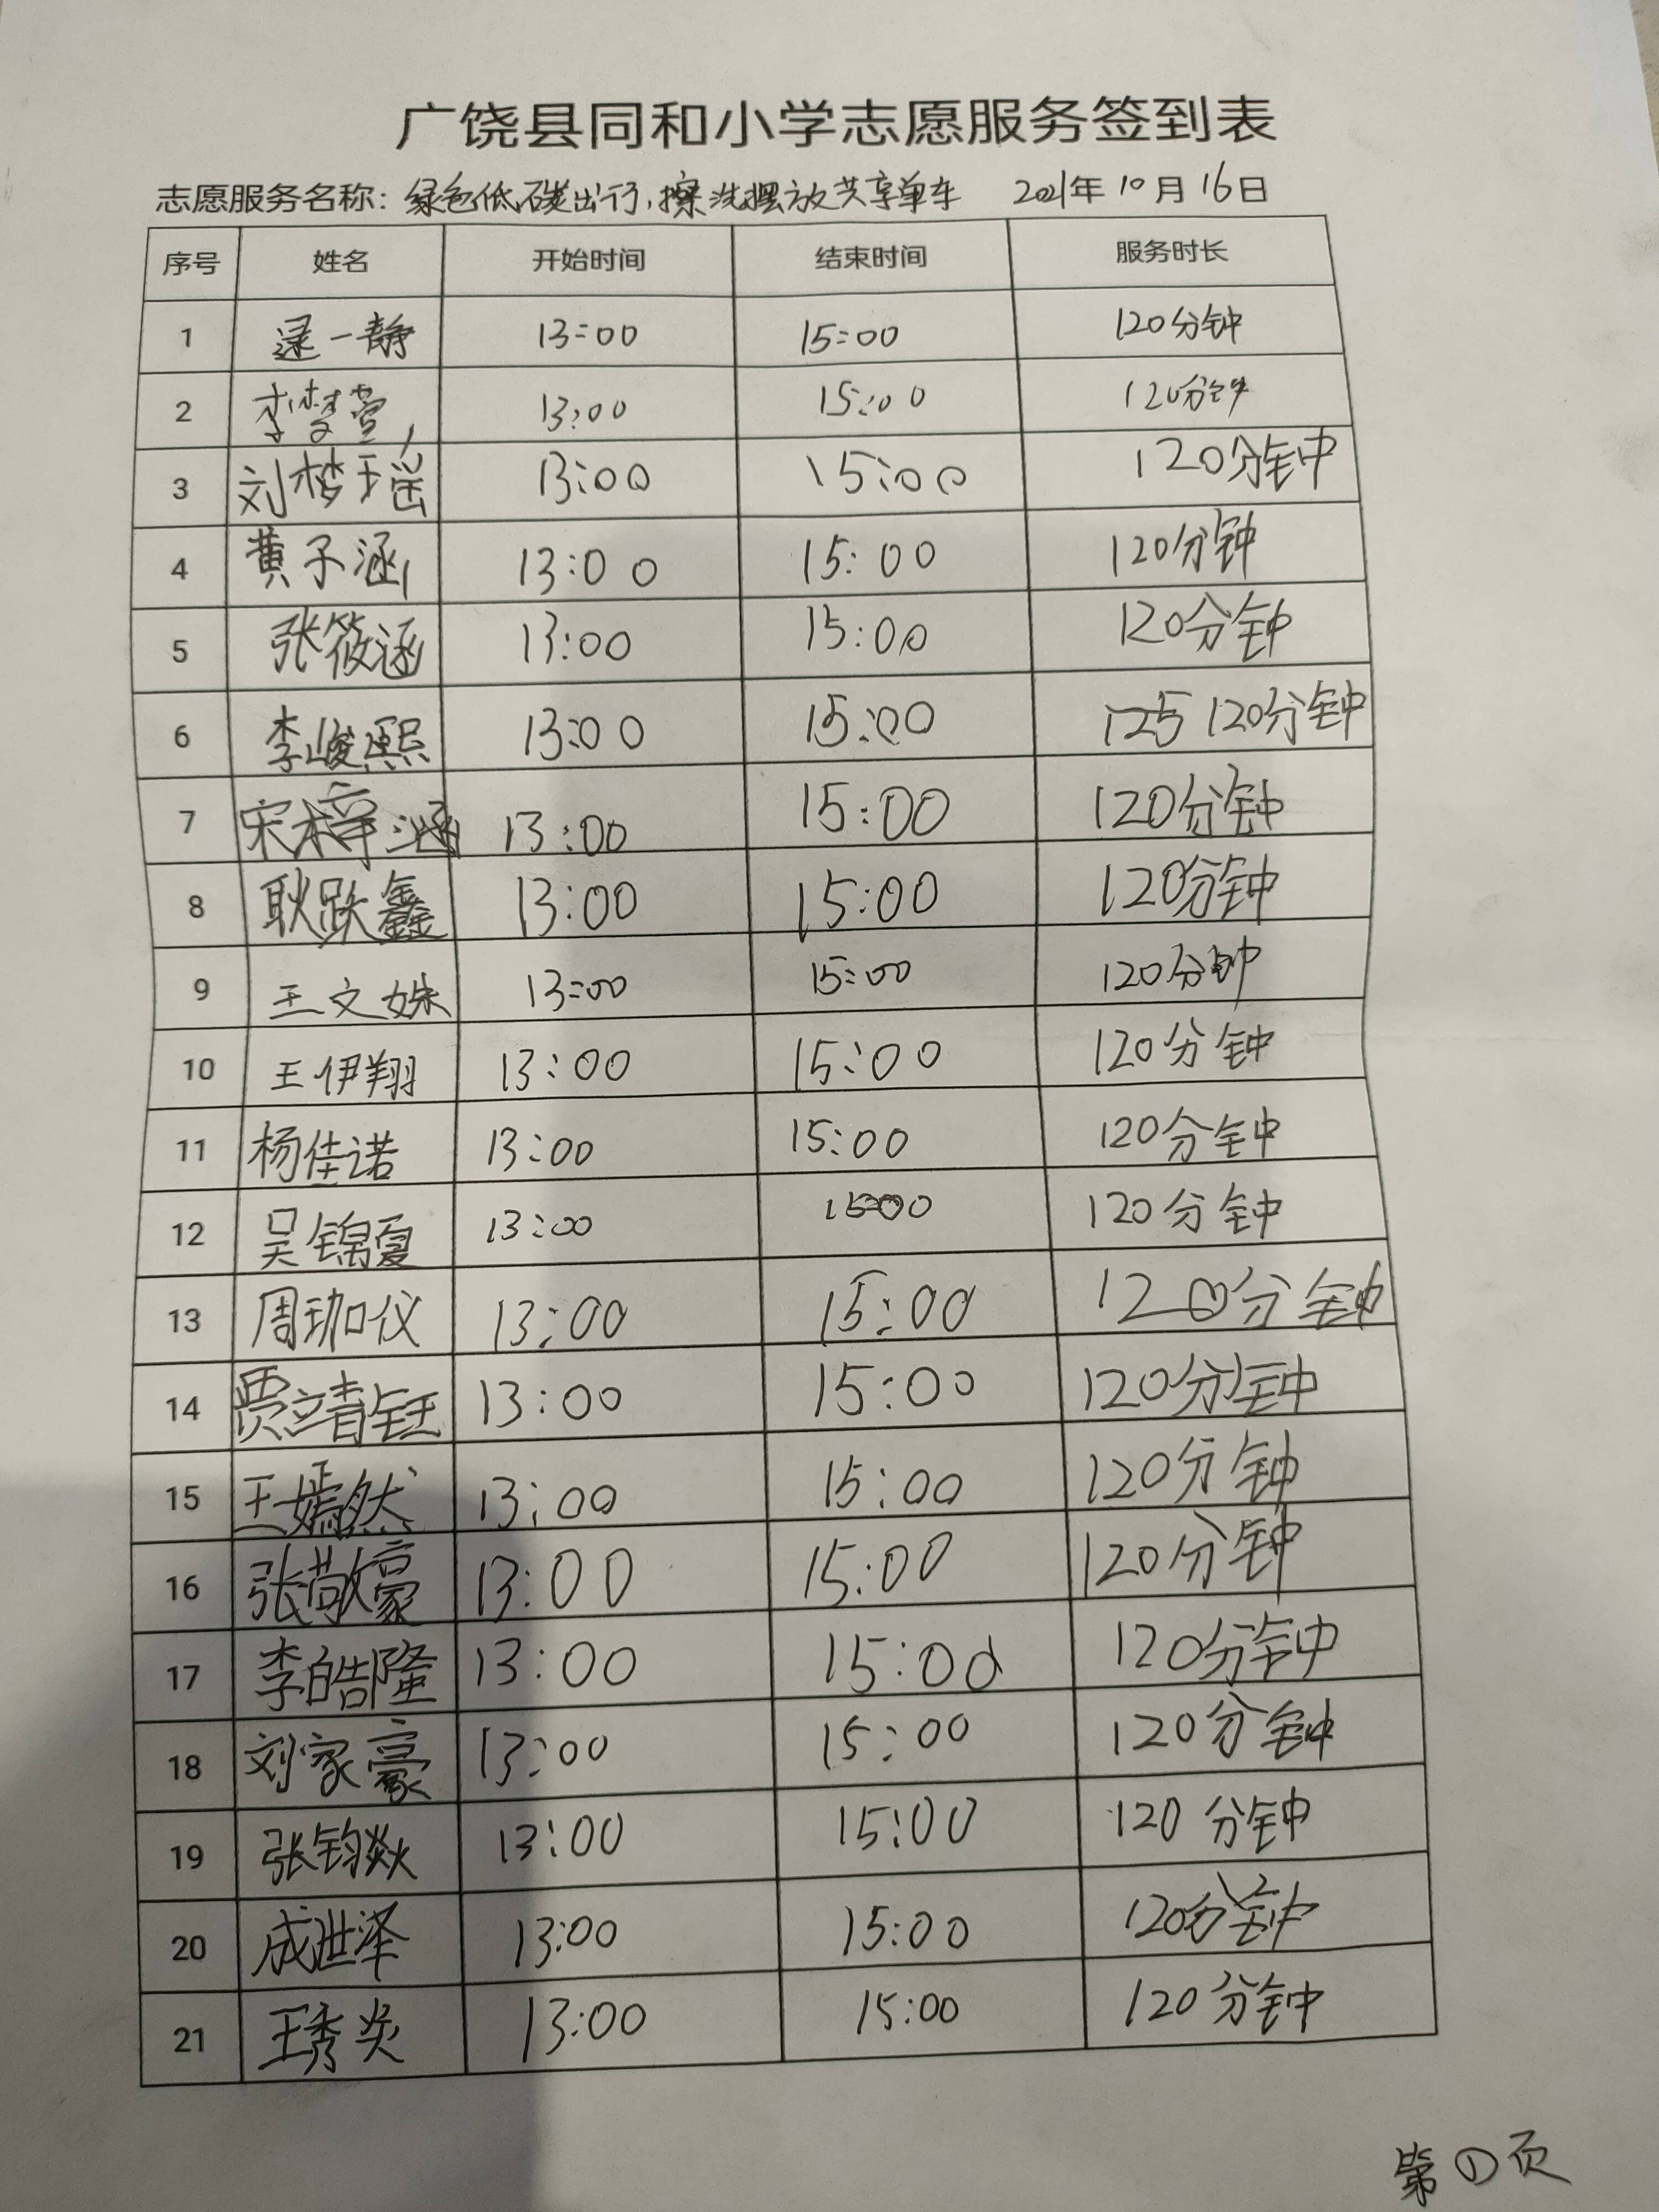 广饶县同和小学志愿服务签到表
志愿服务名称：绿色低碳出行，擦洗摆放共享单车 2021年10月16日
序号 姓名 开始时间 结束时间 服务时长
1 逯一静 13:00 15:00 120分钟
2 李梦萱 13:00 15:00 120分钟
3 刘梦瑶 13:00 15:00 120分钟
4 黄子涵 13:00 15:00 120分钟
5 张筱涵 13:00 15:00 120分钟
6 李峻熙 13:00 15:00 125 120分钟
7 宋梓涵 13:00 15:00 120分钟
8 耿跃鑫 13:00 15:00 120分钟
9 王文姝 13:00 15:00 120分钟
10 王伊翔 13:00 15:00 120分钟
11 杨佳诺 13:00 15:00 120分钟
12 吴锦夏 13:00 15:00 120分钟
13 周珈仪 13:00 15:00 120分钟
14 贾靖钰 13:00 15:00 120分钟
15 王嫣然 13:00 15:00 120分钟
16 张敬豪 13:00 15:00 120分钟
17 李皓隆 13:00 15:00 120分钟
18 刘家豪 13:00 15:00 120分钟
19 张钧焱 13:00 15:00 120分钟
20 成世泽 13:00 15:00 120分钟
21 王秀炎 13:00 15:00 120分钟
第①页